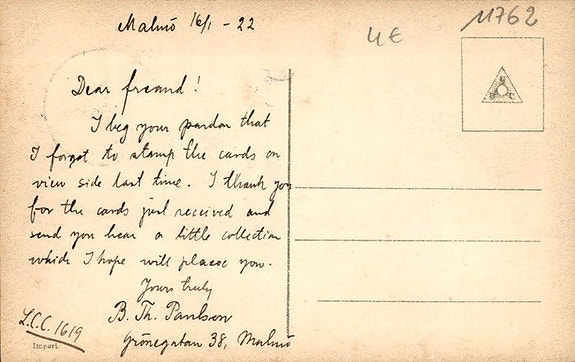 Malmö 16/1 - 22
4€
11762
Dear freand!
I beg your pardon that
I forgot to stamp the cards on
view side last time. I thank you
for the cards just received and
send you hear a little collection
which I hope will pleace you.
Yours truly
B. Th. Paulson
Grönegatan 38, Malmö
L.C.C. 1619
Import.